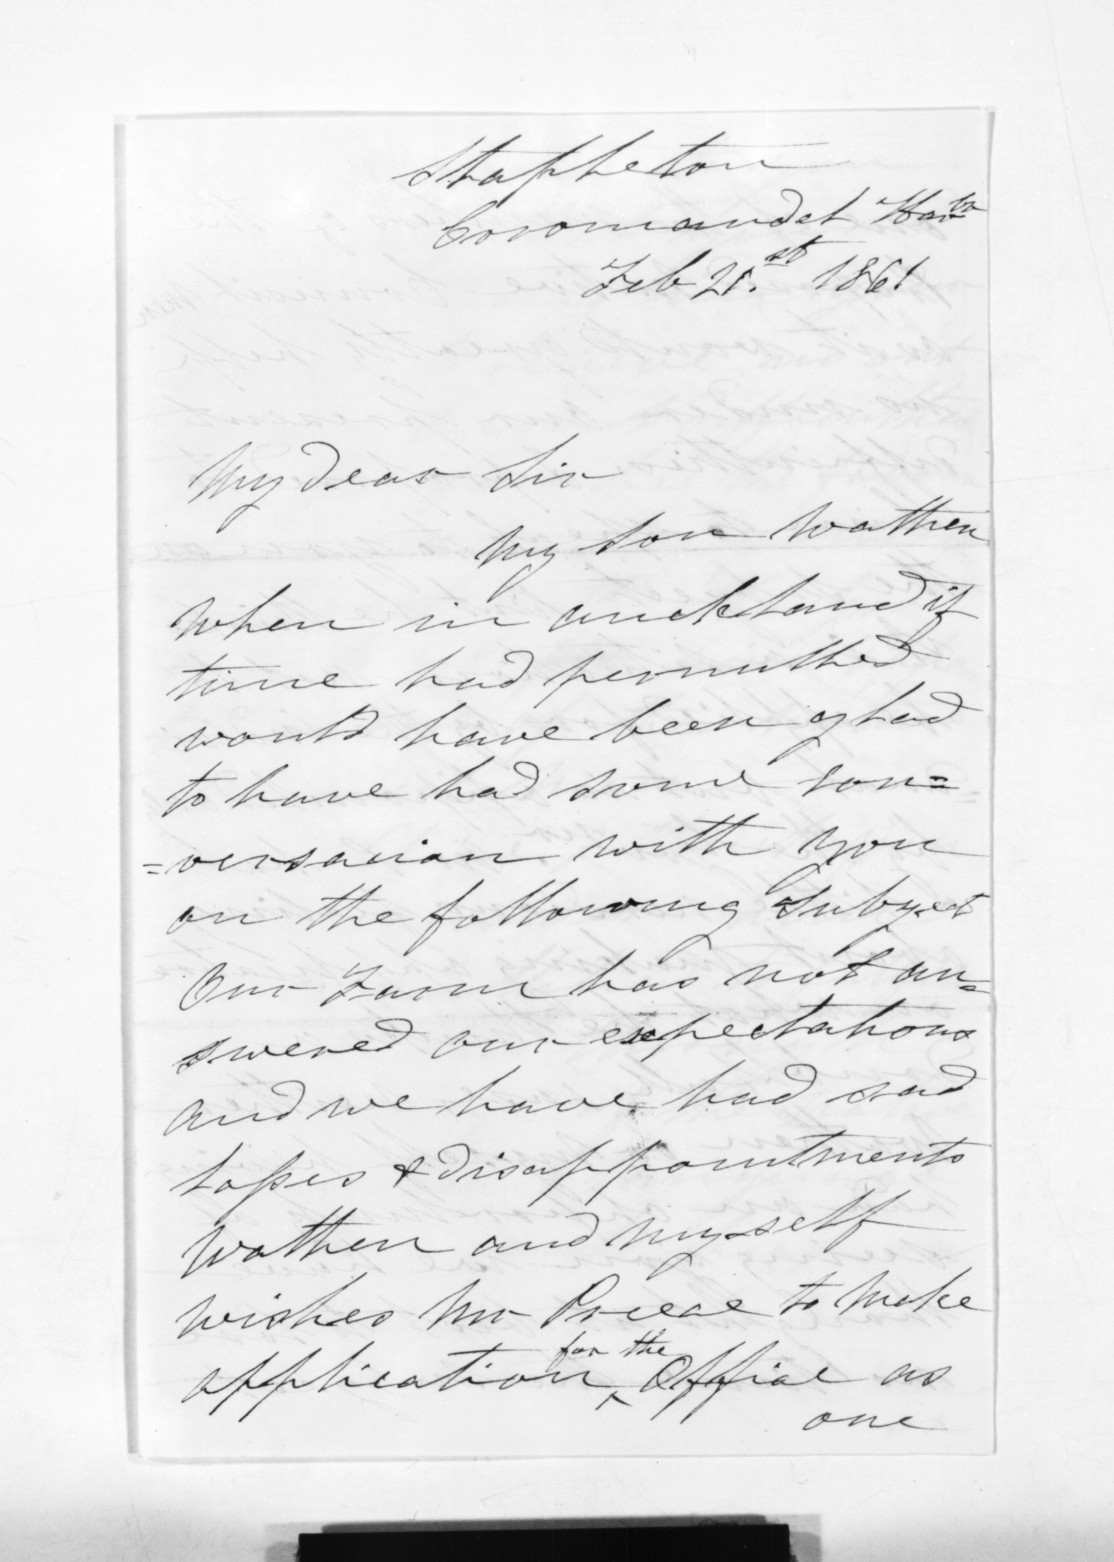 Stapleton
Coromandel Harbr
Feb 21.st 1861
My dear Sir
My son Wathen
when in auckland if
time had permitted
would have been glad
to have had some con=
=versacion with you
on the following Subject
Our Farm has not an=
swered our expectations
and we have had sad
losses & disappointments
Wathen and myself
wishes Mr Preece to make
application for the Offi͏ce as
one